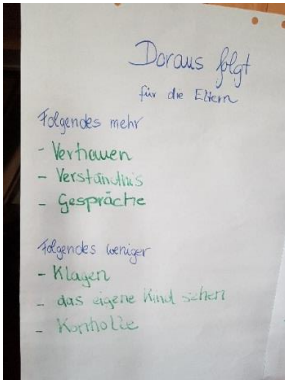 Daraus folgt
für die Eltern
Folgendes mehr
- Vertrauen
- Verständnis
- Gespräche
Folgendes weniger
- Klagen
- das eigene Kind sehen
- Kontrolle